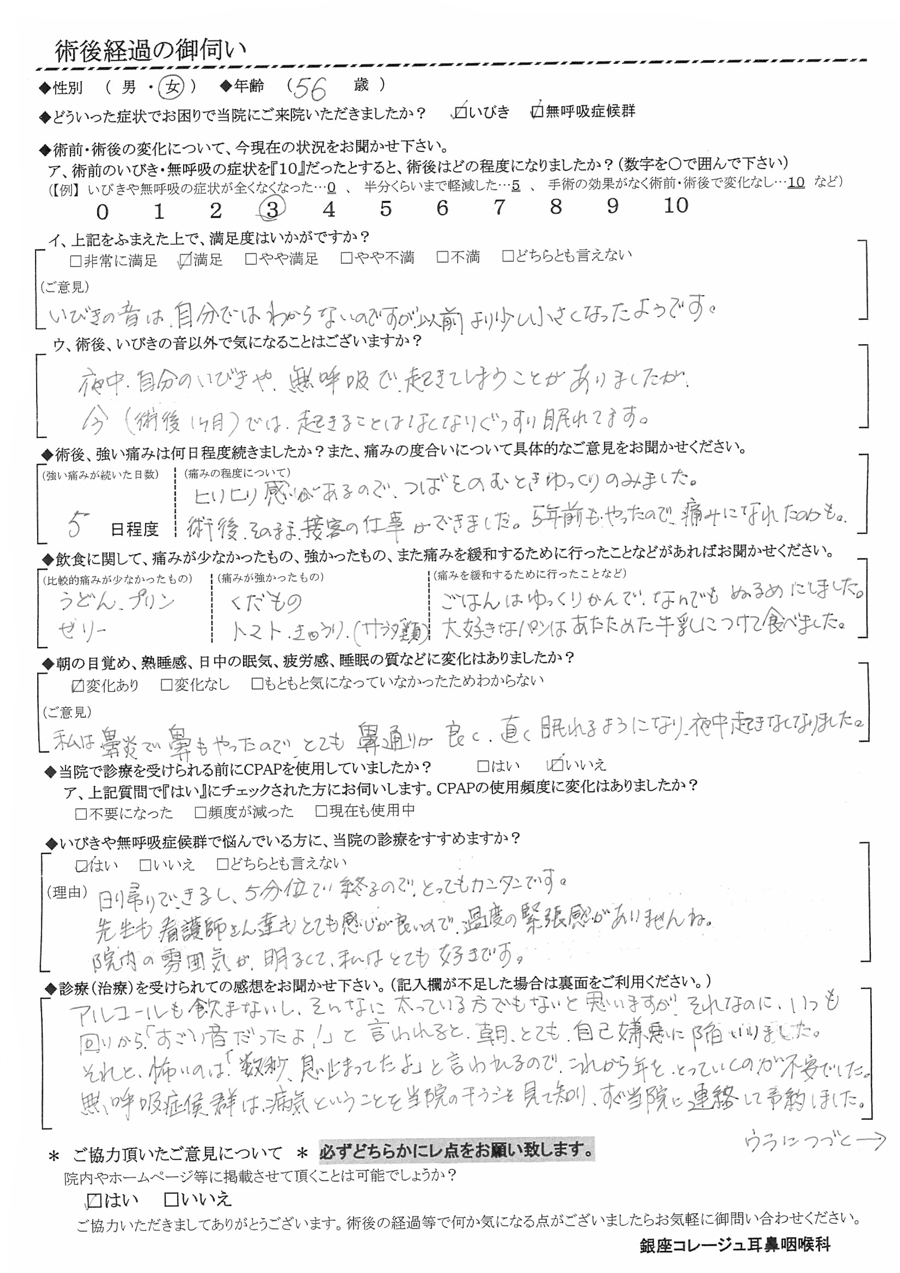 術後経過の御伺い
◆性別 （ 男 ・ 女 ） ◆年齢 （ 56 歳 ）
◆どういった症状でお困りで当院にご来院いただきましたか？ ☑いびき ☑無呼吸症候群
◆術前・術後の変化について、今現在の状況をお聞かせ下さい。
ア、術前のいびき・無呼吸の症状を『10』だったとすると、術後はどの程度になりましたか？（数字を〇で囲んで下さい）
（【例】 いびきや無呼吸の症状が全くなくなった…0 、 半分くらいまで軽減した…5 、 手術の効果がなく術前・術後で変化なし…10 など）
0 1 2 3 4 5 6 7 8 9 10
イ、上記をふまえた上で、満足度はいかがですか？
□非常に満足 ☑満足 □やや満足 □やや不満 □不満 □どちらとも言えない
（ご意見）
いびきの音は、自分ではわからないのですが以前より少し小さくなったようです。
ウ、術後、いびきの音以外で気になることはございますか？
夜中、自分のいびきや、無呼吸で、起きてしまうことがありましたが、
今（術後1ヶ月）では、起きることはなくなりぐっすり眠れてます。
◆術後、強い痛みは何日程度続きましたか？また、痛みの度合いについて具体的なご意見をお聞かせください。
（強い痛みが続いた日数） （痛みの程度について）
ヒリヒリ感じがあるので、つばをのむときゆっくりのみました。
5 日程度 術後、そのまま、接客の仕事ができました。5年前も、やったので、痛みになれたのかも。
◆飲食に関して、痛みが少なかったもの、強かったもの、また痛みを緩和するために行ったことなどがあればお聞かせください。
（比較的痛みが少なかったもの） （痛みが強かったもの） （痛みを緩和するために行ったことなど）
うどん、プリン くだもの ごはんはゆっくりかんで、なんでもぬるめにしました。
ゼリー トマト、きゅうり、（サラダ類） 大好きなパンはあたためた牛乳につけて食べました。
◆朝の目覚め、熟睡感、日中の眠気、疲労感、睡眠の質などに変化はありましたか？
☑変化あり □変化なし □もともと気になっていなかったためわからない
（ご意見）
私は鼻炎で鼻もやったので、とても鼻通りが良く、直ぐ眠れるようになり、夜中起きなくなりました。
◆当院で診療を受けられる前にCPAPを使用していましたか？ □はい ☑いいえ
ア、上記質問で『はい』にチェックされた方にお伺いします。CPAPの使用頻度に変化はありましたか？
□不要になった □頻度が減った □現在も使用中
◆いびきや無呼吸症候群で悩んでいる方に、当院の診療をすすめますか？
☑はい □いいえ □どちらとも言えない
（理由） 日帰りできるし、5分位で終るので、とってもカンタンです。
先生も看護師さん達もとても感じが良いので、過度の緊張感がありませんね。
院内の雰囲気が、明るくて、私はとても好きです。
◆診療（治療）を受けられての感想をお聞かせ下さい。（記入欄が不足した場合は裏面をご利用ください。）
アルコールも飲まないし、そんなに太っている方でもないと思いますが、それなのに、いつも
回りから、「すごい音だったよ！」と言われると、朝、とても、自己嫌悪に陥いりました。
それと、怖いのは、「数秒、息止まってたよ」と言われるので、これから年を、とっていくのが不安でした。
無呼吸症候群は、病気ということを当院のチラシを見て知り、すぐ当院に連絡して予約しました。
ウラにつづく→
＊ ご協力頂いたご意見について ＊ 必ずどちらかにレ点をお願い致します。
院内やホームページ等に掲載させて頂くことは可能でしょうか？
☑はい □いいえ
ご協力いただきましてありがとうございます。術後の経過等で何か気になる点がございましたらお気軽に御問い合わせください。
銀座コレージュ耳鼻咽喉科